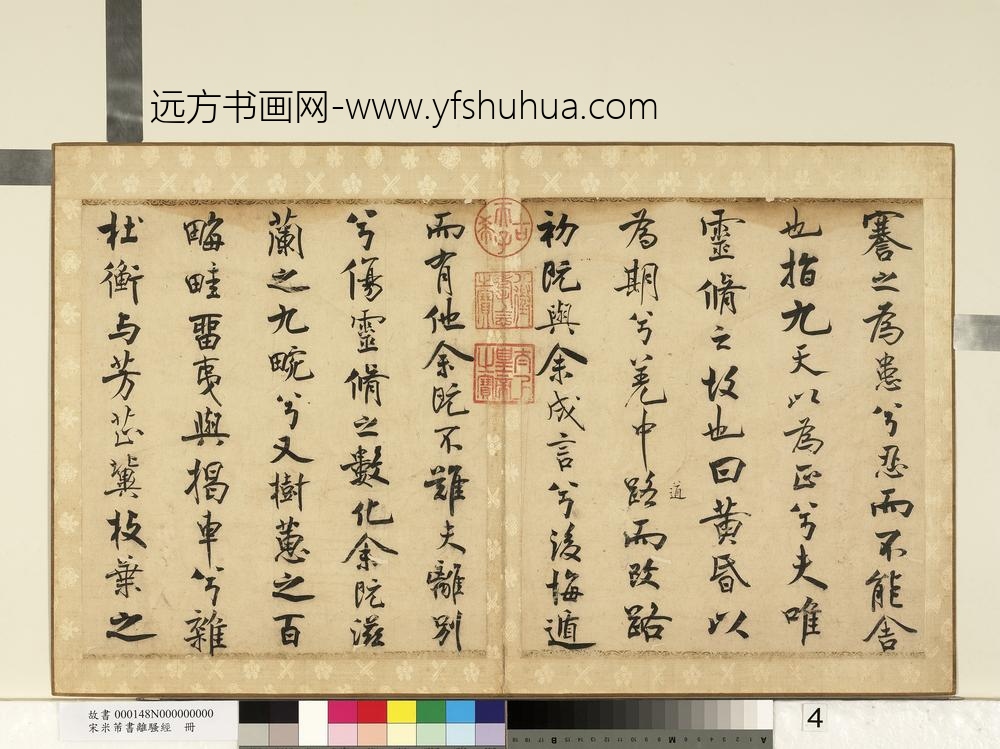 远方书画网-www.yfshuhua.com
謇之為患兮忍而不能舍
也指九天以為正兮夫唯
靈脩之故也曰黄昏以
為期兮羌中路而改路
道
初既與余成言兮後悔遁
而有他余既不難夫離別
兮傷靈脩之數化余既滋
蘭之九畹兮又樹蕙之百
畮畦畱夷與揭車兮雜
杜衡与芳芷冀枝葉之
古希天子
八徵耄念之寶
太上皇帝之寶
故書 000148N000000000
宋米芾書離騷經 冊
4